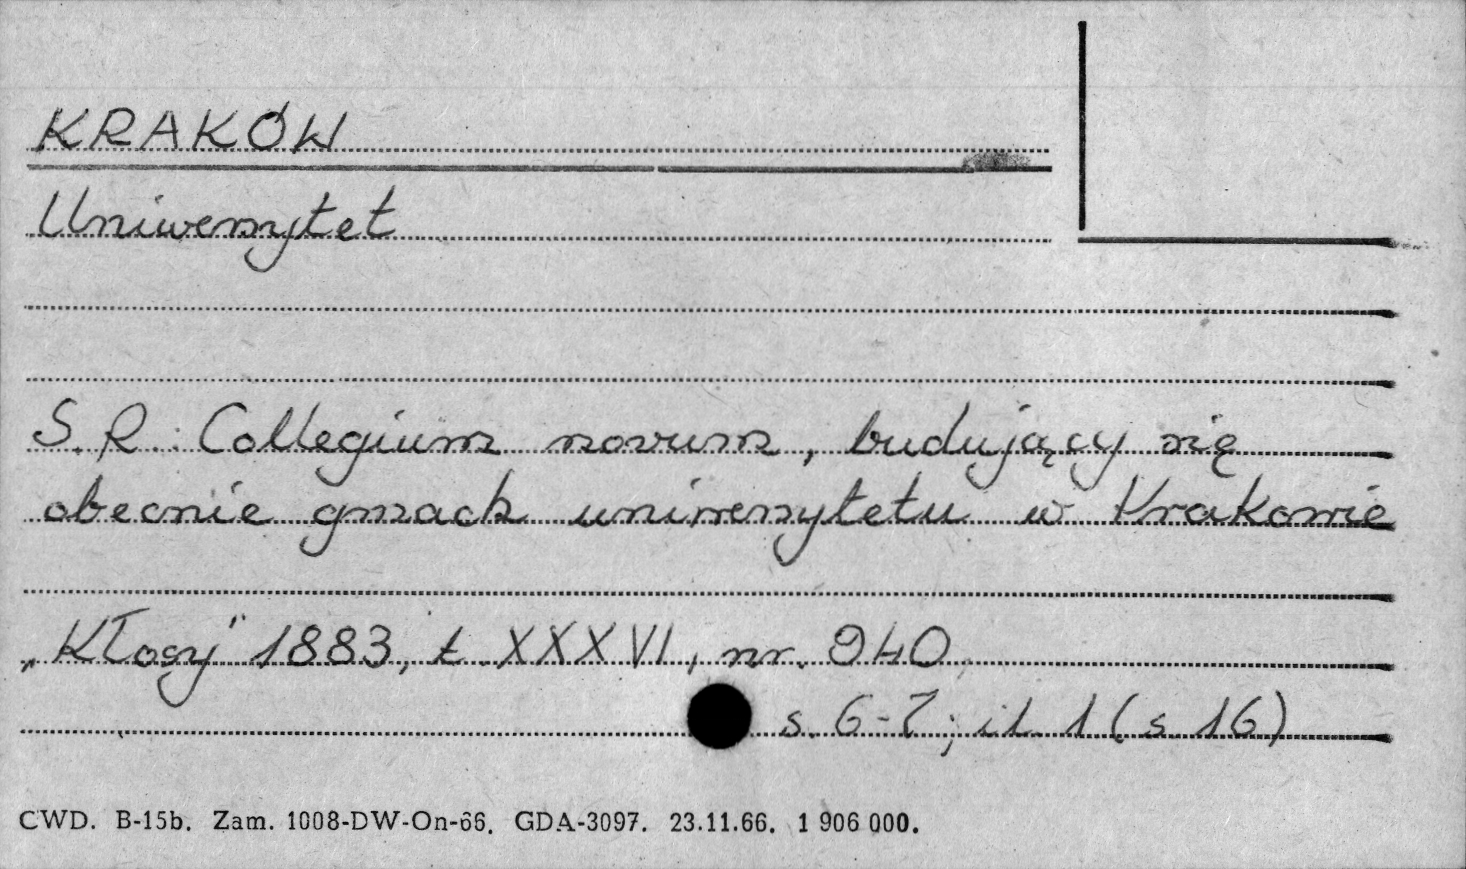 KRAKÓW
Uniwersytet
S. R.: Collegium novum, budujący się
obecnie gmach uniwersytetu w Krakowie
„Kłosy" 1883, t. XXXVI, nr. 940,
s. 6-7; il. 1 (s 16)
CWD. B-15b. Zam. 1008-DW-On-66. GDA-3097. 23.11.66. 1 906 000.